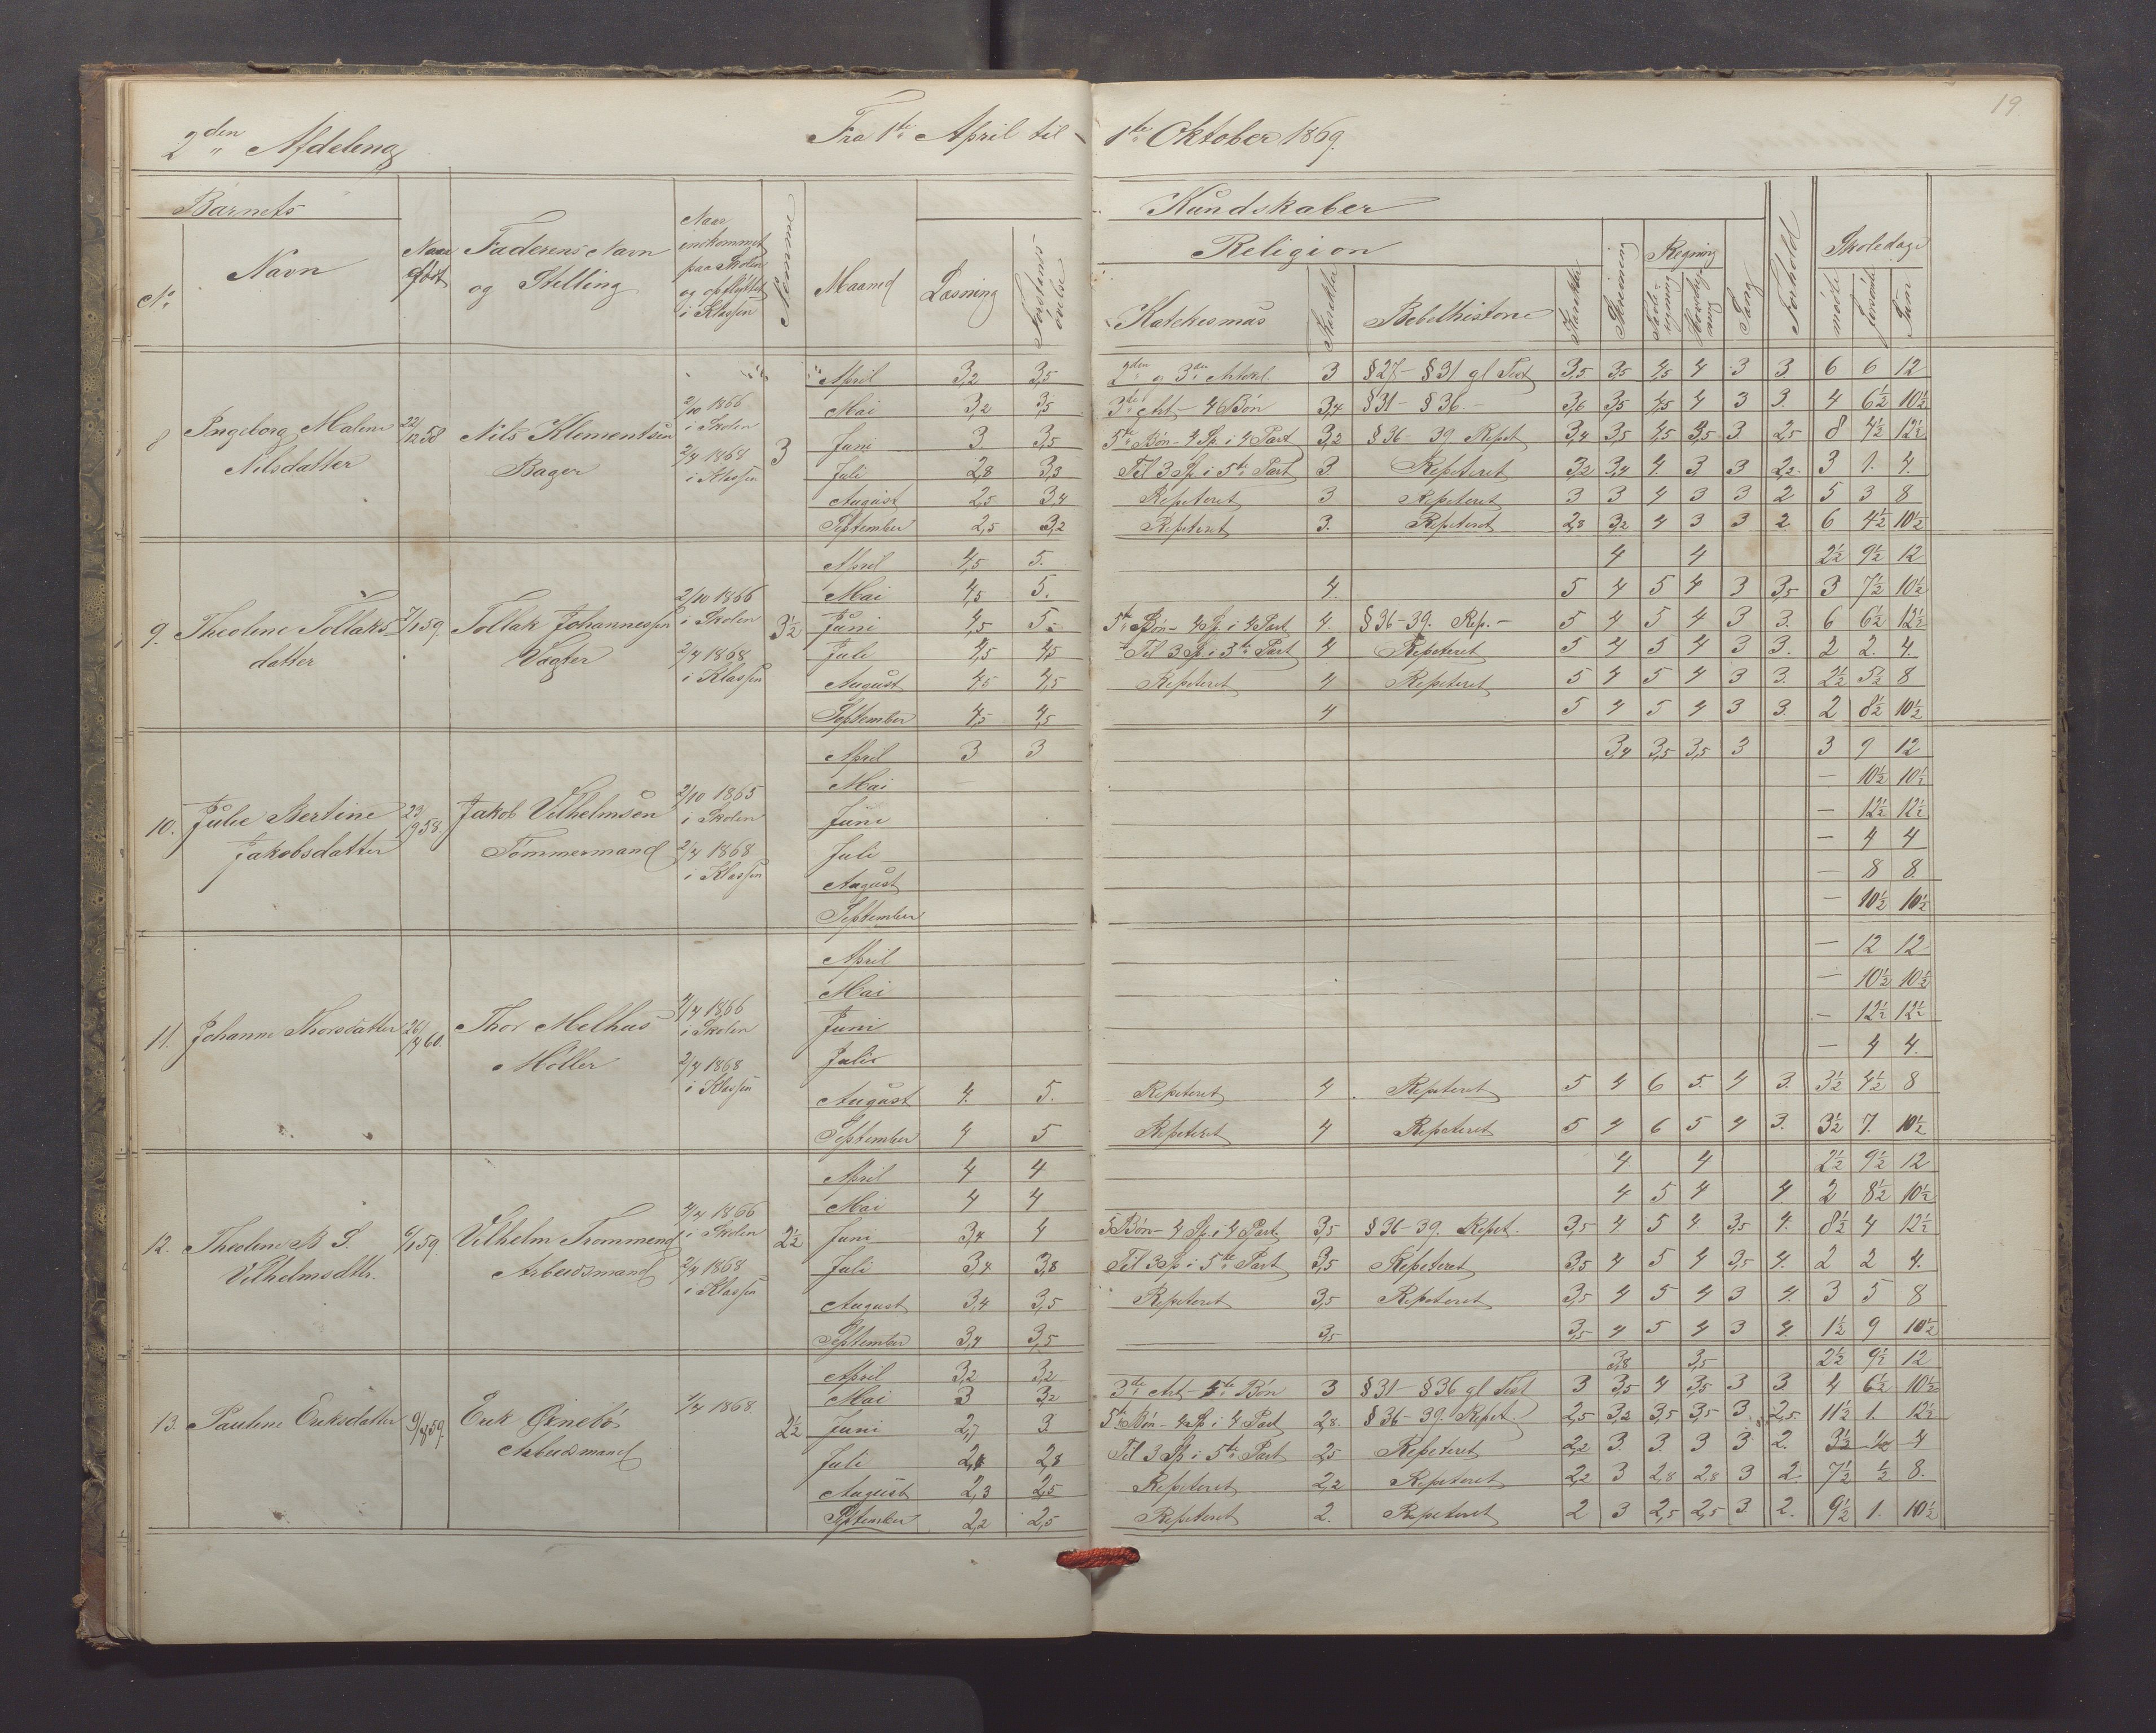 19
2den Afdeling Fra 1ste April til 1ste Oktober 1869.
Barnets Kundskaber
No Navn Naar født Faderens Navn og Stilling Naar indkommet paa Skolen og opflyttet i Klassen Nemme Maaned Læsning Forstands øvelse Religion Katekismus Karakter Bibelhistorie Karakter Skrivning Regning Tavleregning Hovedregning Sang Forhold Skoledage mødte forsømte Sum
April 3,2 3,5 2den og 3die Artikel 3 § 27 - § 31 gl Test 3,5 3,5 4,5 4 3 3. 6 6 12
2/10 1866 Mai 3,2 3,5 3die Art - 4 Bøn 3,4 § 31 - § 36. - 3,6 3,5 4,5 4 3 3. 4 6½ 10½
i Skolen
8 Ingeborg Maline 22/12 58 Nils Klementsen 3 Juni 3 3,5 5te Bøn - 4 Sp. i 4 Part 3,2 § 36 - 39 Repet 3,4 3,5 4,5 3,5 3 2,5 8 4½ 12½
Nilsdatter Bager 2/4 1868 Juli 2,8 3,3 Til 3 Sp i 5te Part 3 Repeteret 3,2 3,4 4. 3 3 2,2. 3 1. 4.
i Klassen
August 2,5 3,4 Repeteret 3 Repeteret 3 3 4 3 3 2 5 3 8
September 2,5 3,2 Repeteret 3. Repeteret 2,8 3,2 4 3 3 2. 6 4½ 10½
April 4,5 5. 4 4 2½ 9½ 12
2/10 1866 Mai 4,5 5. 4. 5 4 5 4 3 3,5 3 7½ 10½
9. Theoline Tollaks Tollak Johannessen i Skolen 3½ Juni 4,5 5. 5te Bøn - 4 Sp. i 4 Part 4. § 36-39. Rep. - 5 4 5 4 3 3. 6 6½ 12½
datter Vægter 2/4 1868 Juli 4,5 4,5 Til 3 Sp i 5te Part 4 Repeteret 5 4 5 4 3 3. 2 2. 4.
i Klassen August 4,5 4,5 Repeteret 4 Repeteret 5 4 5 4 3 3. 2½ 5½ 8
September 4,5 4,5 4 5 4 5 4 3 3. 2 8½ 10½
April 3 3 3,4 3,5 3,5 3 3 9 12
2/10 1865 Mai — 10½ 10½
10. Julie Bertine 23/9 58. Jakob Vilhelmsen i Skolen Juni — 12½ 12½
Jakobsdatter Tømmermand 2/4 1868 Juli — 4 4
i Klassen August — 8 8.
September — 10½ 10½
April — 12 12
Mai — 10½ 10½
11. Johanne Thorsdatter 26/4 60. Thor Melhus 2/4 1866 i Skolen Juni — 12½ 12½
Møller 2/4 1868 Juli — 4 4.
i Klassen August 4. 5. Repeteret 4 Repeteret 5 4 6 5. 4 3. 3½ 4½ 8
September 4 5 Repeteret 4 Repeteret 5 4 6 5 4 3. 3½ 7. 10½
April 4 4 4 4 2½ 9½ 12
2/4 1866 Mai 4 4 4 5 4 4 2 8½ 10½
12. Theoline B S. Vilhelm Trommend i Skolen 2½ Juni 3,4 4 5 Bøn - 4 Sp. i 4 Part. 3,5 § 36-39. Repet. 3,5 4 5 4. 3,5 4. 8½ 4 12½
Vilhelmsdtr. Arbeidsmand 2/4 1868 Juli 3,4 3,8 Til 3 Sp i 5te Part 3,5 Repeteret 3,5 4 5 4 3,5 4. 2 2 4.
i Klassen August 3,4 3,5 Repeteret 3,5 Repeteret 3,5 4 5 4 3 4. 3 5 8
September 3,4 3,5 3,5 3,5 4 5 4 3 4. 1½ 9 10½
April 3,2 3,2 3,8 3,5 2½ 9½ 12
1/4 1868. Mai 3 3,2 3die Art - 5te Bøn 3 § 31 - § 36 gl Test 3 3,5 4 3,5 3 3 4 6½ 10½
13. Pauline Eriksdatter 9/8 59. Erik 2½ Juni 2,7 3. 5te Bøn - 4 Sp i 4 Part 2,8. § 36 - 39. Repet. 2,5 3,2 3,5 3,5 3. 2,5. 11½ 1. 12½
Arbeidsmand Juli 2,8 Til 3 Sp i 5te Part 2,5 Repeteret 2,2 3. 3. 3 3. 2. 3½ ½ 4
August 2,3 2,5 Repeteret 2,2 Repeteret 2,2 3 2,8 2,8 3 2. 7½ ½ 8.
September 2,2 2,5 Repeteret 2. Repeteret 2 3 2,5 2,5 3. 2. 9½ 1. 10½